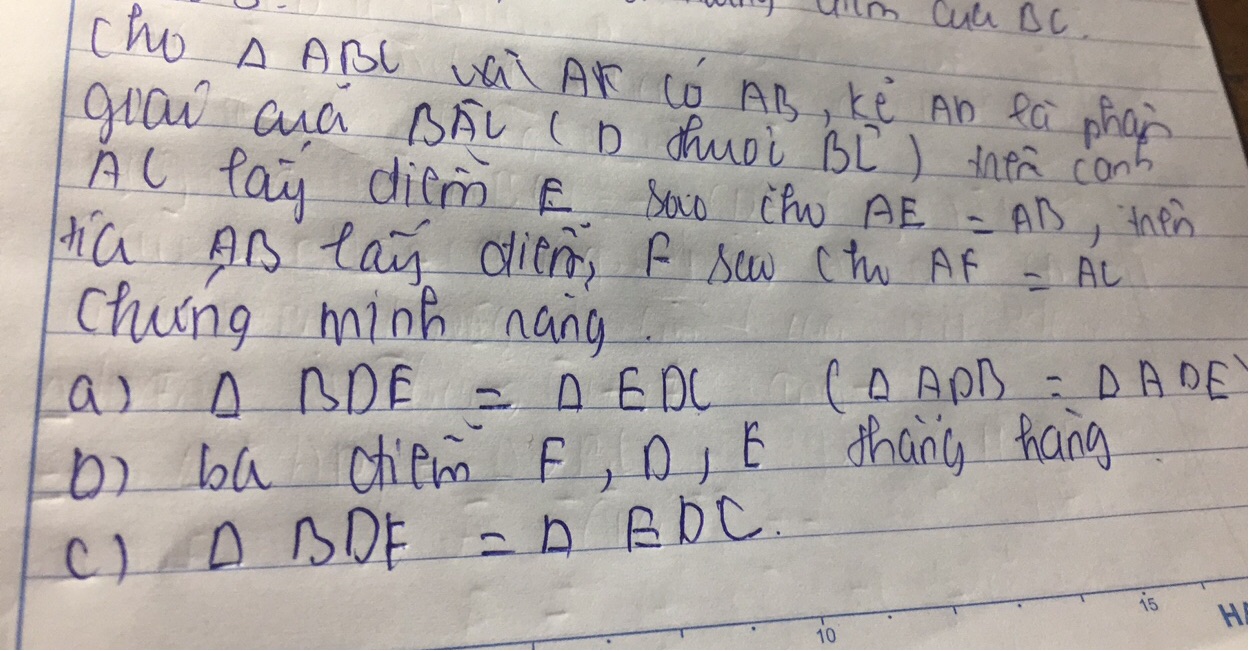 điểm của BC.
Cho Δ ABC với AK có AB, kẻ AD là phân
giai cuả BAC ( D thuoi BC ) trên canh
AC lấy điểm E sao cho AE = AB, trên
tia AB lấy điểm, F sao cho AF = AC
Chứng minh rằng.
a) Δ BDF = Δ EDC (Δ ADB = Δ ADE)
b) ba điểm F, D, E thẳng hàng
c) Δ BDF = Δ EDC.
10
15